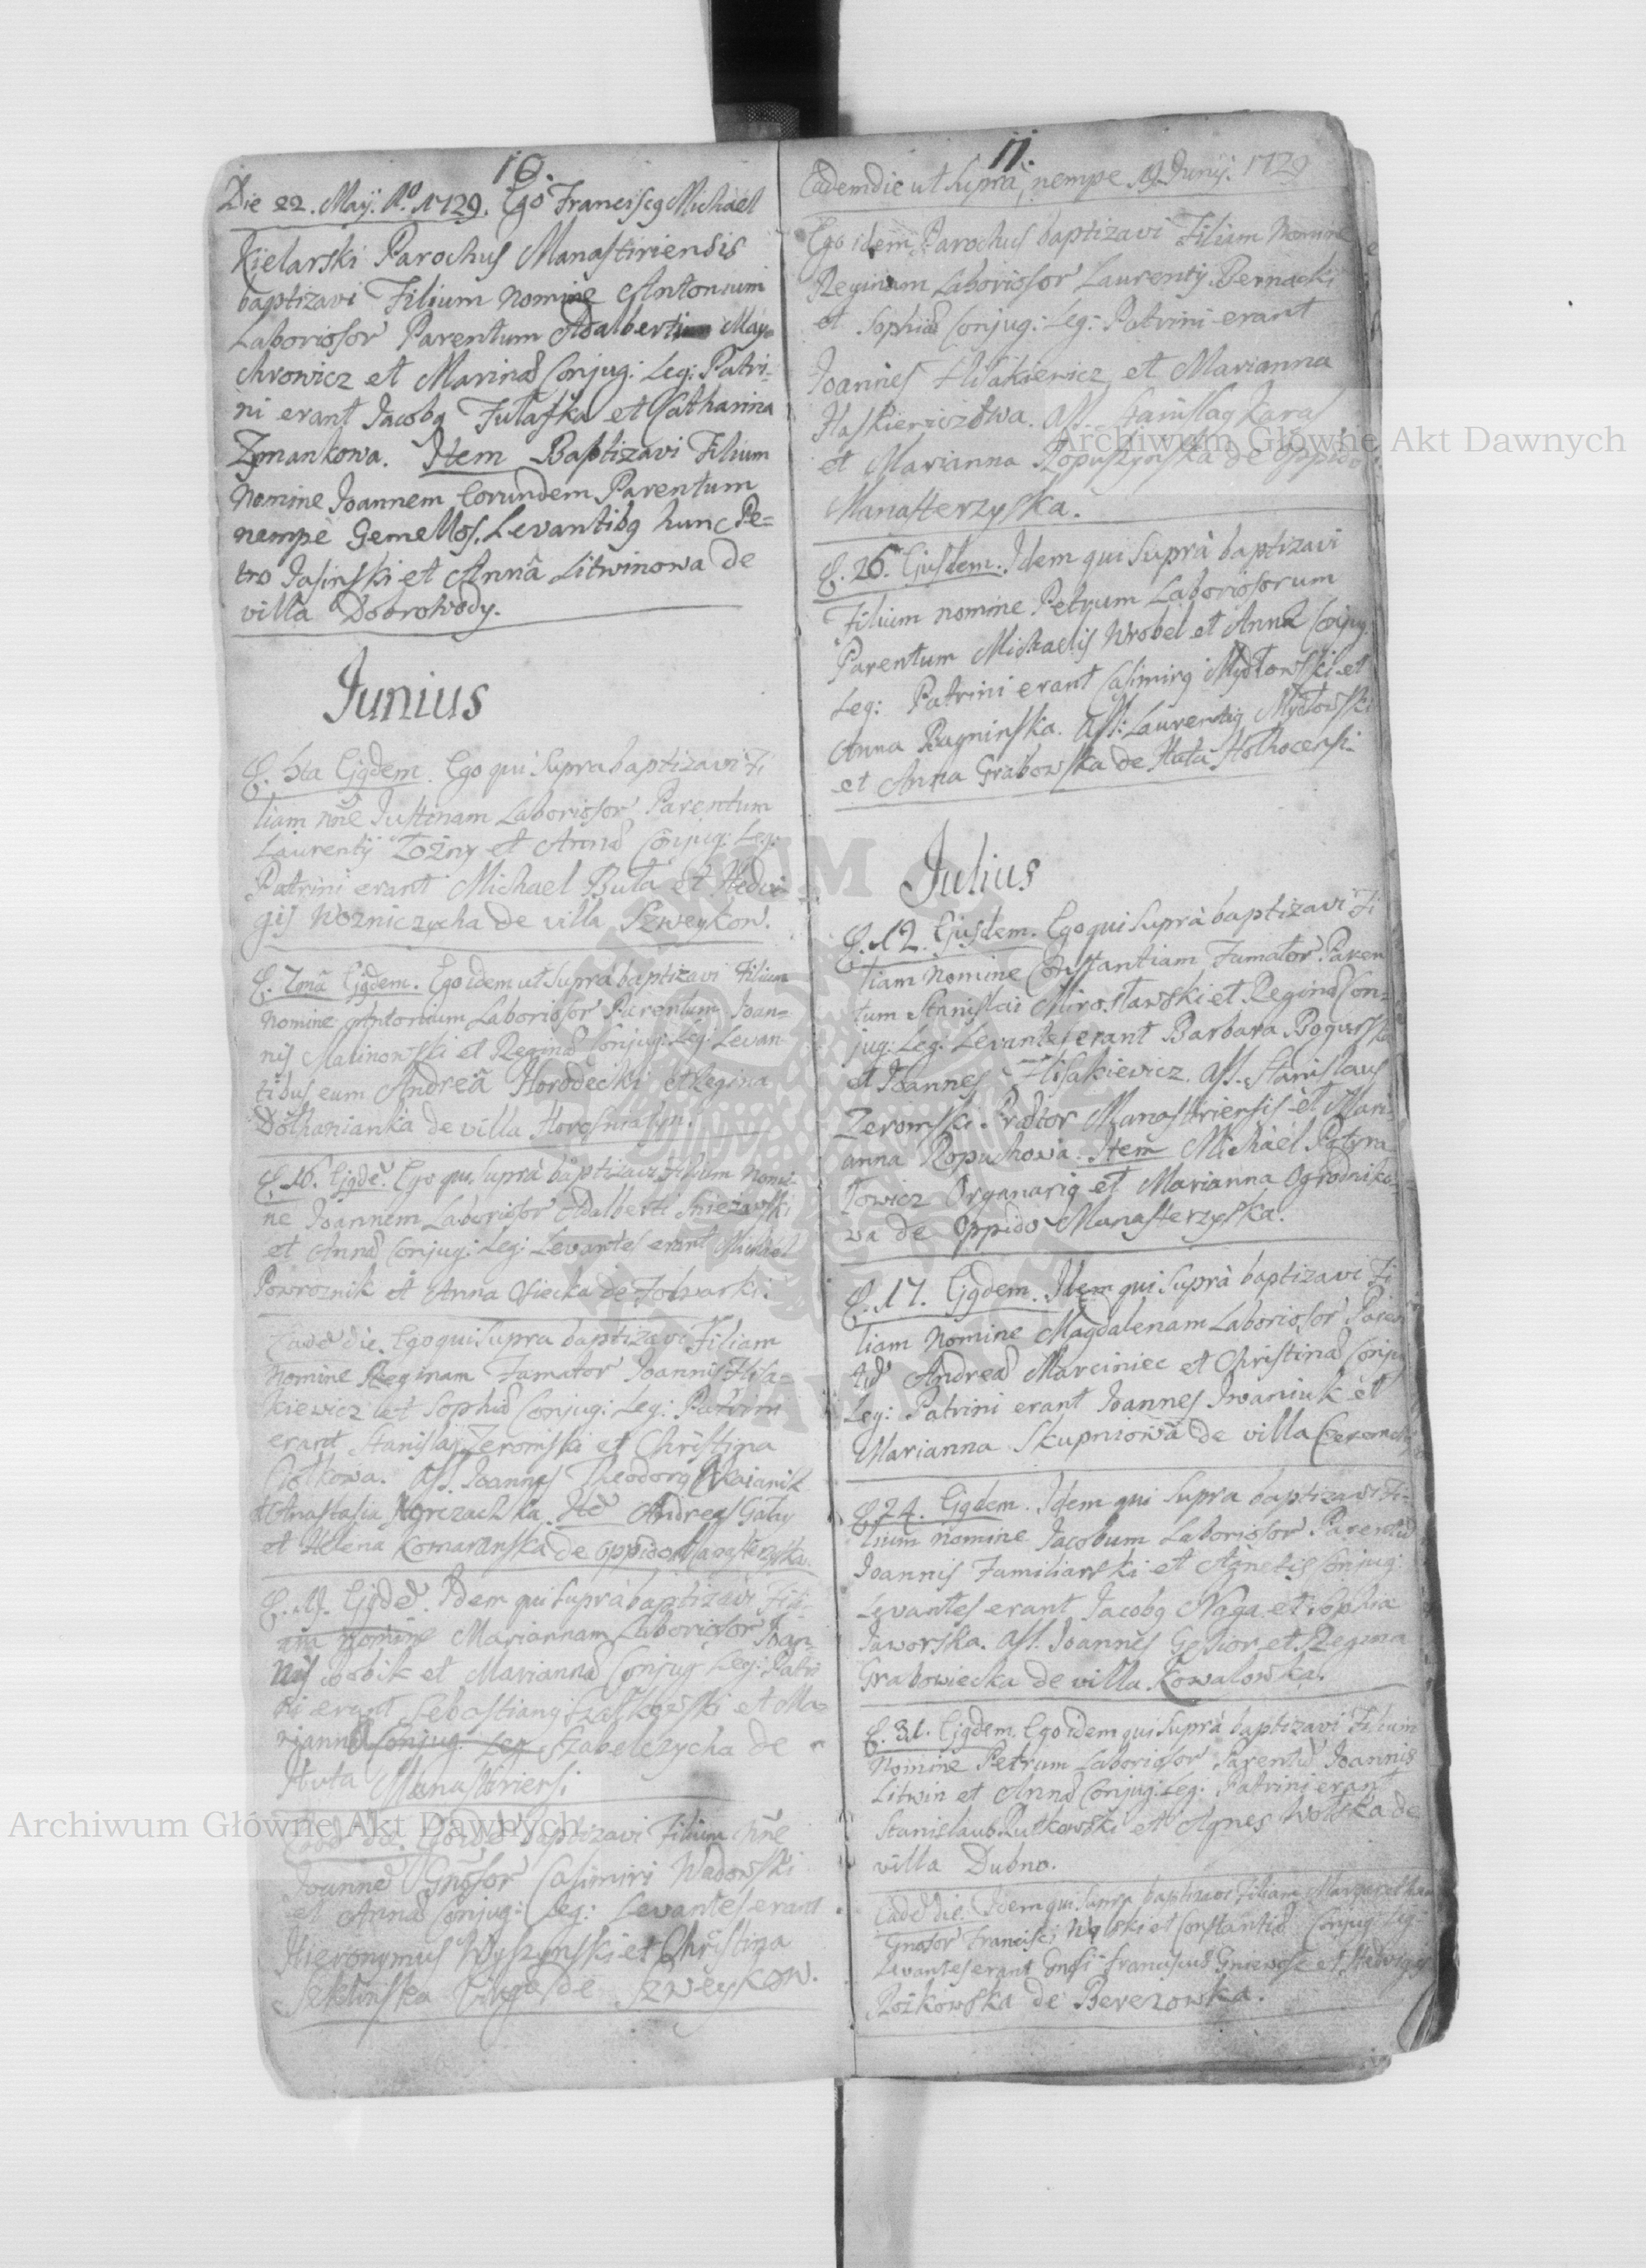 10.
Die 22. Maij. Aº 1729. Ego Franciscg Michael
Kielarski Parochus Manastiriensis
baptizavi Filium nomine Antonium
Laborioſor Parentum Adalberti May-
chrowicz et Marinæ Conjug: Leg: Patri-
ni erant Jacobg Fulaſka et Catharina
Zymankowa. Item Baptizavi Filium
Nomine Joannem Eorundem Parentum
nempè Gemellos. Levantibg hunc Pe=
tro Jasinſki et Annâ Litwinowa de
villa Dobrowody.
Junius
E. 5ta Ejgdem. Ego qui Supra baptizavi Fi
liam nñe Juſtinam Laborioſor Parentum
Laurentij Łoźny et Annæ Conjug: Leg:
Patrini erant Michael Buła et Hedvi-
gis Wozniczycha de villa Szweykow.
E. 7mâ Ejgdem. Ego idem ut Suprà baptizavi Filium
Nomine Antonium Laborioſor Parentum Joan=
nis Malinowſki et Reginæ Conjug: Leg: Levan-
tibus eum Andreâ Horodecki et Regina
Dołhanianka de villa
E. 16. Ejgdē. Ego qui Suprà baptizavi Filium Nomi-
ne Joannem Laborioſor Adalberti Sniezawſki
et Annæ Conjug: Leg: Levantes erant Michael
Powroznik et Anna de Folwarki.
Eadē die. Ego qui Supra baptizavi Filiam
Nomine Reginam Famator Joannis Hlisa-
kiewicz et Sophiæ Conjug: Leg: Patrini
erant Stanislaus Zeromſki et Chriſtina
Ciołkowa. Aſſ. Joannes Theodorg
Anastasia Itē Andreas Gałuy
et Helena de oppido Manaſterzyſka.
E. 19. Ejgdē. Idem qui Suprà baptizavi Fili-
am nomine Mariannam Laborioſor Joan-
nis Bobik et Mariannæ Conjug Leg: Patri
ni erant Sebastiang et Ma=
rianna Conjug: Leg Szabelczycha de
Huta Manastiriensi
Eadē die. Ego idē baptizavi Filium nñe
Joannē Gñosor Casimiri Wadowſki
et Annæ Conjug: Leg: Levantes erant
Hieronymus Wyszynſki et Chriſtina
Virgo de Szweykow.
11.
Eadem die ut Supra, nempe 19 Junij. 1729
Ego idem Parochus baptizavi Filiam Nomine
Reginam Laborioſor Laurentij Bernacki
et Sophiæ Conjug: Leg: Patrini erant
Joannes Hlisakiewicz et Marianna
Haſkiewiczowa. Aſſ. Stanislag Karaś
et Marianna Ropuszynſka de Oppido
Manaſterzyſka.
E. 26. Ejusdem. Idem qui Suprà baptizavi
Filium nomine Petrum Laborioſorum
Parentum Michaelis Wrobel et Annæ Conjug.
Leg: Patrini erant Casimirg Mydłowſki et
Anna Aſſ: Laurentig Mydłowſki
et Anna Grabowſka de Huta
Julius
E. 12. Ejusdem. Ego qui Suprà baptizavi Fi
liam Nomine Conſtantiam Famator Paren
tum Stanislai Mirosławski et Reginæ Con=
jug: Leg. Levantes erant Barbara Bogurſka
et Joannes Hlisakiewicz. Aſſ. Stanislaus
Zeromſki Prætor Manaſtiriensis et Mari-
anna Ropuchowa. Item Michael Patyra
łowicz Organarig et Marianna Ogrodniko-
wa de Oppido Manaſterzyſka.
E. 17. Ejgdem. Idem qui Suprà baptizavi Fi
liam Nomine Magdalenam Laborioſor Paren
tū Andreæ Marciniec et Christinæ Conjug
Leg: Patrini erant Joannes Iwaniuk et
Marianna Skupniowa de villa
E. 24. Ejgdem. Idem qui Supra baptizavi Fi-
lium nomine Jacobum Laborioſor Parentū
Joannis Familiarſki et Agnetis Conjug:
Levantes erant Jacobg Noga et Sophia
Jaworſka. Aſſ. Joannes Gąsior et Regina
Grabowiecka de villa Kowalowka.
E. 31. Ejgdem. Ego idem qui Suprà baptizavi Filium
Nomine Petrum Laborioſor Parentū Joannis
Litwin et Annæ Conjug: Leg: Patrini erant
Stanislaus Rutkowſki et Agnes Wolſka de
villa Dubno.
Eadē die. Idem qui Supra baptizavi Filiam Margaretham
Gnosor Francisci Wolſki et Conſtantiæ Conjug Leg:
Levantes erant Gnosi Franciscus Gniewosz et Hedvigis
Rożkowſka de Berezowka.
Archiwum Główne Akt Dawnych
Archiwum Główne Akt Dawnych